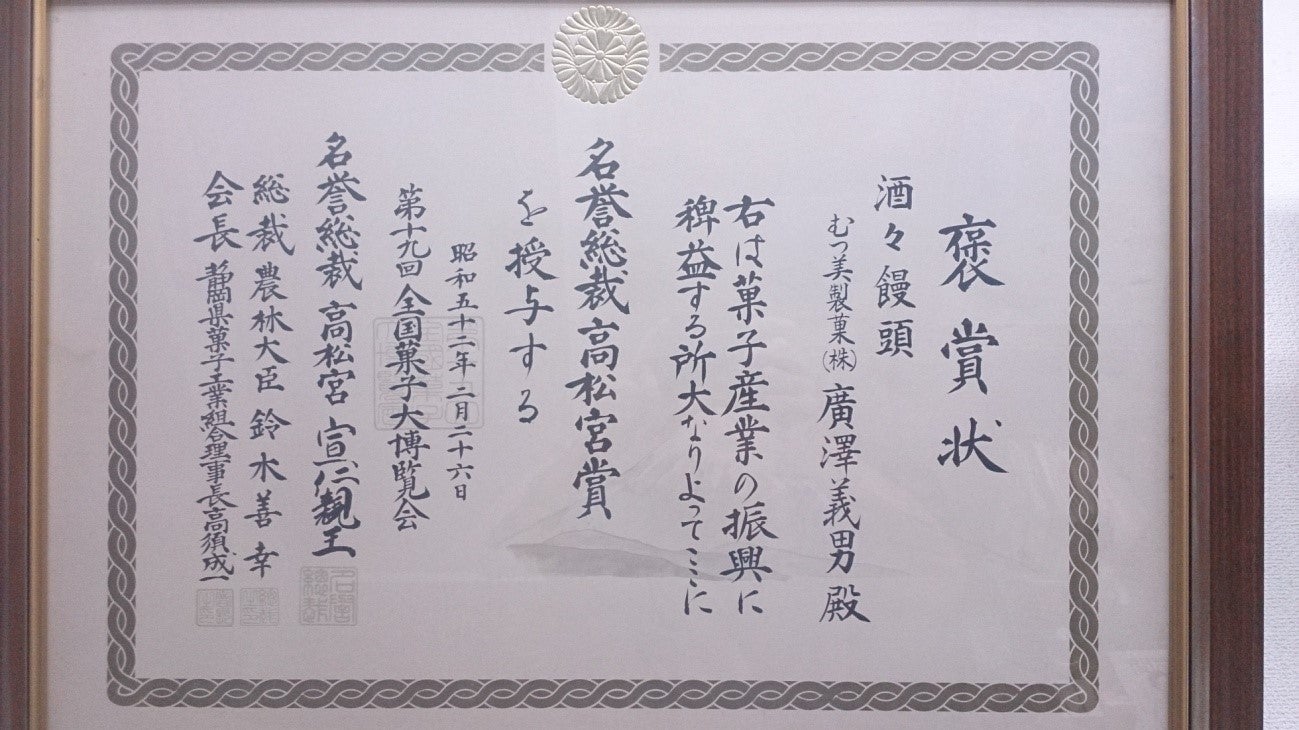 褒賞状
酒々饅頭
むつ美製菓(株)廣澤義男殿
右は菓子産業の振興に
稗益する所大なりよってここに
名誉総裁高松宮賞
を授与する
昭和五十二年二月二十六日
第十九回全国菓子大博覧会
名誉総裁高松宮宣仁親王
総裁農林大臣鈴木善幸
会長静岡県菓子工業組合理事長高須成一